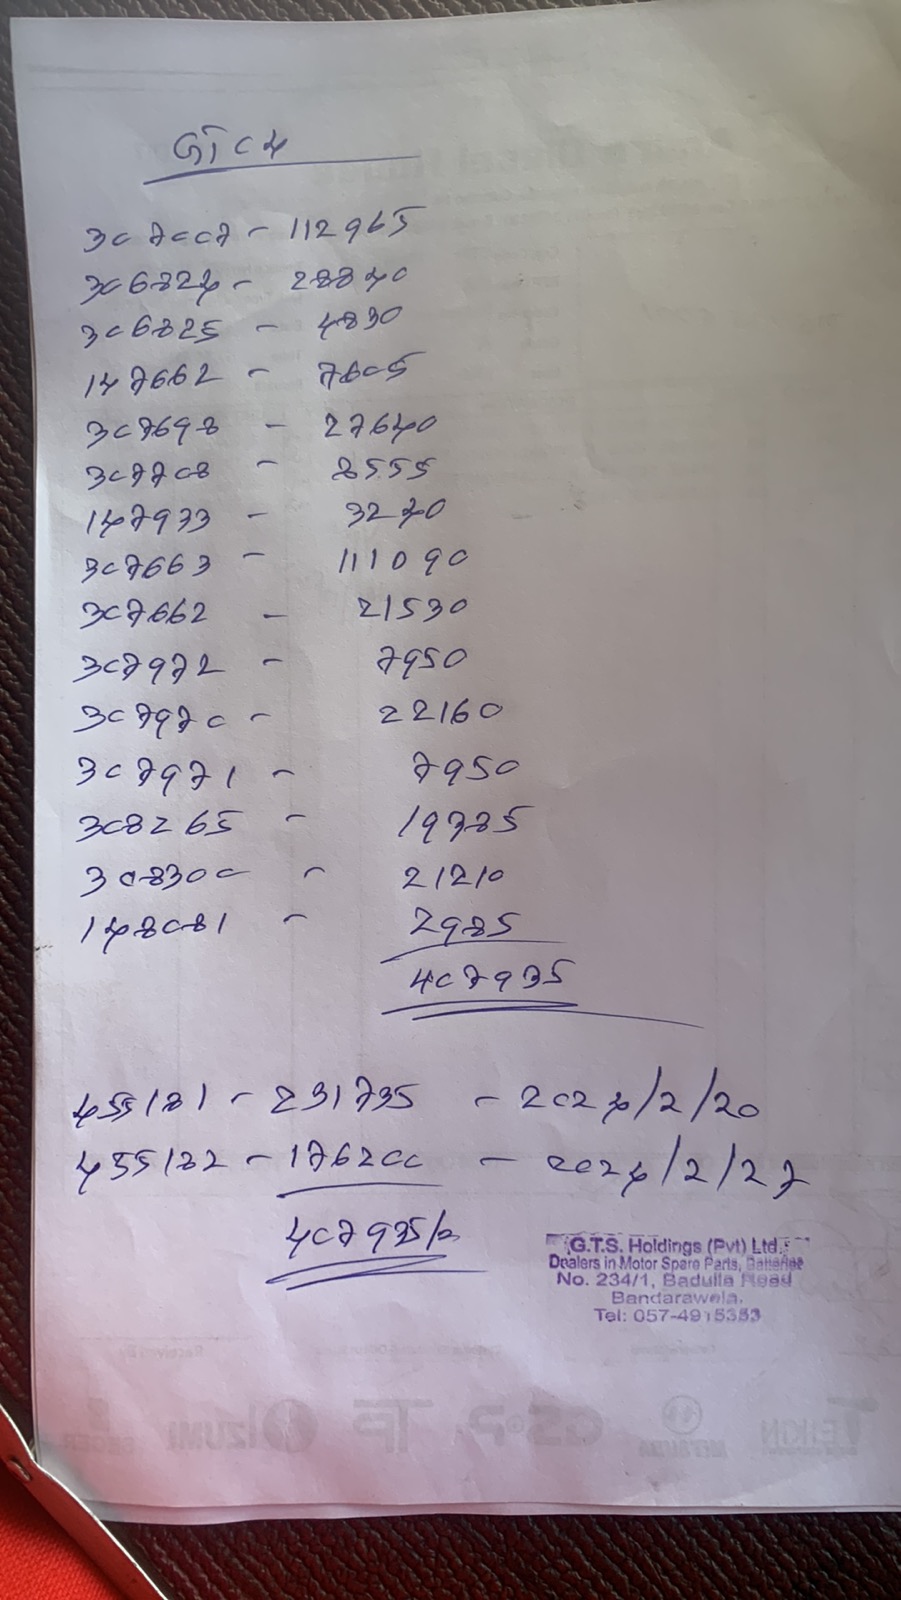 GTC4
307007 - 112965
306824 - 28840
306825 - 4830
147662 - 7605
307698 - 27640
307708 - 8555
147933 - 3240
307663 - 111090
307662 - 21530
307972 - 7950
307970 - 22160
307971 - 7950
308265 - 19385
308300 - 21210
148081 - 2985
407935
455181 - 231735 - 2024/2/20
455182 - 176200 - 2024/2/27
407935/=
G.T.S. Holdings (Pvt) Ltd.
Dealers in Motor Spare Parts, Batteries
No. 234/1, Badulla Road
Bandarawela.
Tel: 057-4915353